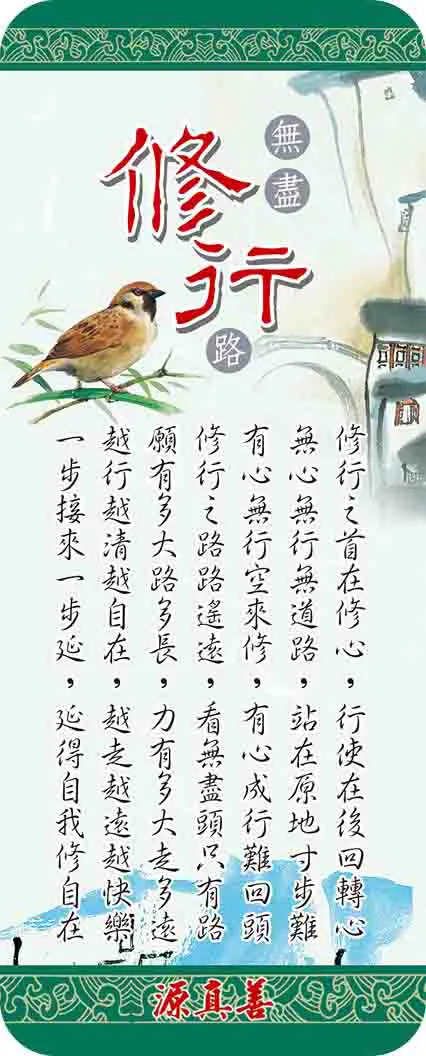 無盡
修行
路
修行之首在修心，行使在後回轉心
無心無行無道路，站在原地寸步難
有心無行空來修，有心成行難回頭
修行之路路遙遠，看無盡頭只有路
願有多大路多長，力有多大走多遠
越行越清越自在，越走越遠越快樂
一步接來一步延，延得自我修自在
源真善